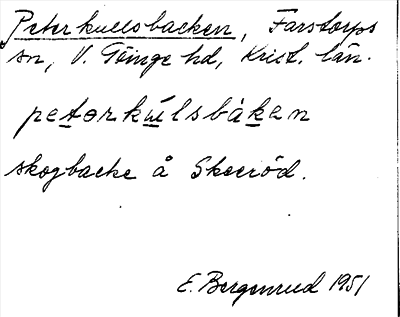 Peterkullsbacken, Farstorps
sn, V. Göinge hd, Krist. län.
petərkulsbàkən
skogbacke å Skeeröd.
E. Bergenrud 1951